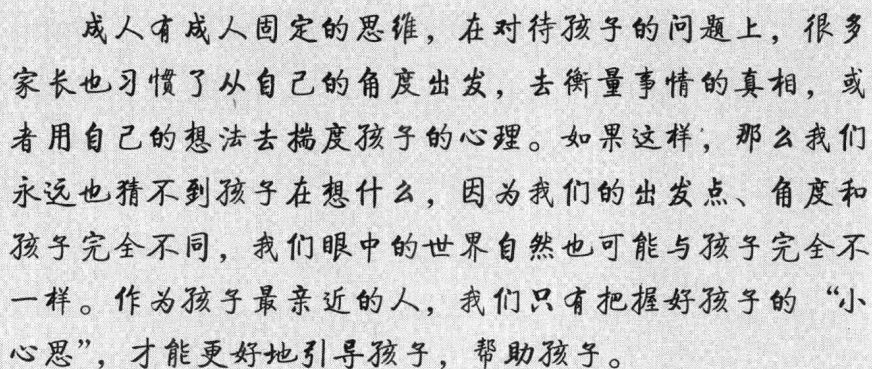 成人有成人固定的思维，在对待孩子的问题上，很多
家长也习惯了从自己的角度出发，去衡量事情的真相，或
者用自己的想法去揣度孩子的心理。如果这样，那么我们
永远也猜不到孩子在想什么，因为我们的出发点、角度和
孩子完全不同，我们眼中的世界自然也可能与孩子完全不
一样。作为孩子最亲近的人，我们只有把握好孩子的“小
心思”，才能更好地引导孩子，帮助孩子。